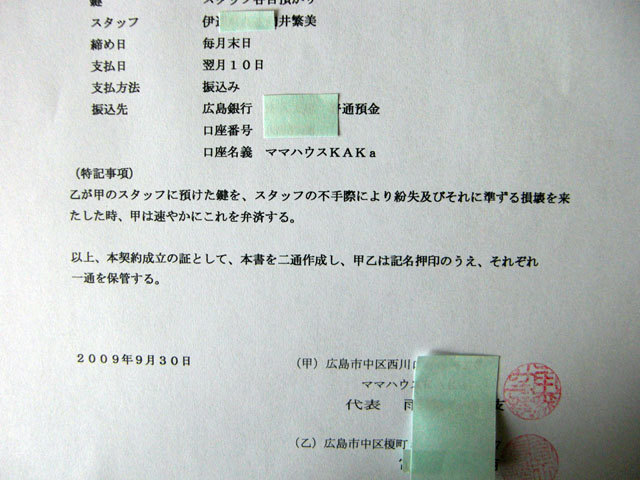 鍵 スタッフ各自預かり
スタッフ 伊達 井繁美
締め日 毎月末日
支払日 翌月１０日
支払方法 振込み
振込先 広島銀行 通預金
口座番号
口座名義 ママハウスＫＡＫａ
（特記事項）
乙が甲のスタッフに預けた鍵を、スタッフの不手際により紛失及びそれに準ずる損壊を来
たした時、甲は速やかにこれを弁済する。
以上、本契約成立の証として、本書を二通作成し、甲乙は記名押印のうえ、それぞれ
一通を保管する。
２００９年９月３０日 （甲）広島市中区西川口
ママハウス
代表 雨 枝
（乙）広島市中区榎町